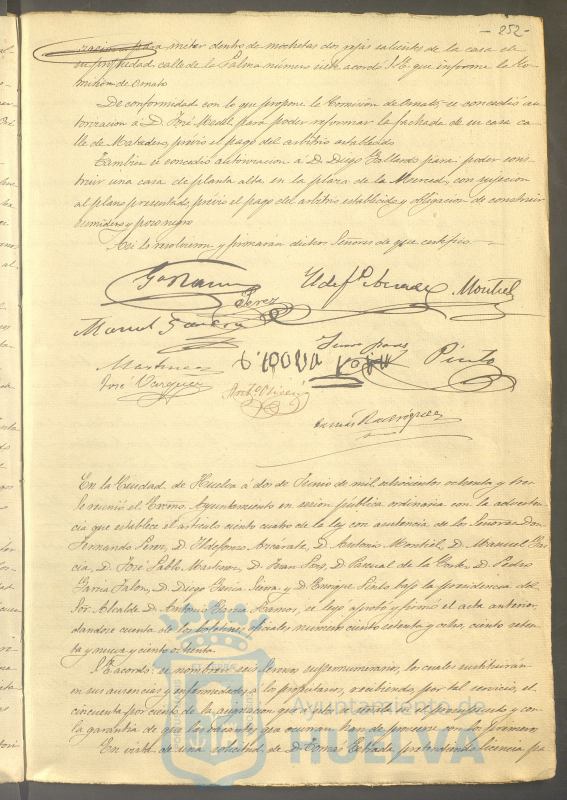 - 252 -
para meter dentro de mochetas dos rejas salientes de la casa de
su propiedad calle de la Palma número siete acordó S.E. que informe la Co-
misión de Ornato
De conformidad con lo que propone la Comisión de Ornato se concedió au-
torizacion á D. José para poder reformar la fachada de su casa ca-
lle de Mataderos, previo el pago del arbitrio establecido
Tambien se concedió autorizacion á D. Diego Gallardo para poder cons-
truir una casa de planta alta en la plaza de la Merced, con sujecion
al plano presentado, previo el pago del arbitrio establecido y obligacion de construir
sumidero y pozo negro
Asi lo resolvieron y firmarán dichos Señores de que certifico
Perez
Montiel
Manuel Garcia
Juan
Pinto
Martinez
José Vazquez
Rodriguez
En la Ciudad de Huelva á dos de Junio de mil ochocientos ochenta y tres
se reunió el Excmo. Ayuntamiento en sesion pública ordinaria con la adverten-
cia que establece el artículo ciento cuatro de la ley con asistencia de los Señores Don
Fernando Perez, D. Ildefonso Azcárate, D. Antonio Montiel, D. Manuel Gar-
cia, D. José Pablo Martinez, D. Juan D. Pascual de la Corte, D. Pedro
Garcia Jalon, D. Diego Garcia Sierra y D. Enrique Pinto bajo la presidencia del
Sor. Alcalde D. Antonio Garcia Ramos, se leyó aprobó y firmó el acta anterior,
dandose cuenta de los boletines oficiales número ciento setenta y ocho, ciento seten-
ta y nueve y ciento ochenta.
S.E. acordó: se nombren seis serenos supernumerarios, los cuales sustituirán
en sus ausencias y enfermedades á los propietarios, recibiendo, por tal servicio, el
cincuenta por ciento de la asignacion que á estos se señala en el presupuesto y con
la garantía de que las vacantes que ocurran han de proveerse con los primeros
En vista de una solicitud de D. Tomás Estrada, pretendiendo licencia pa
Ayuntamiento de
HUELVA